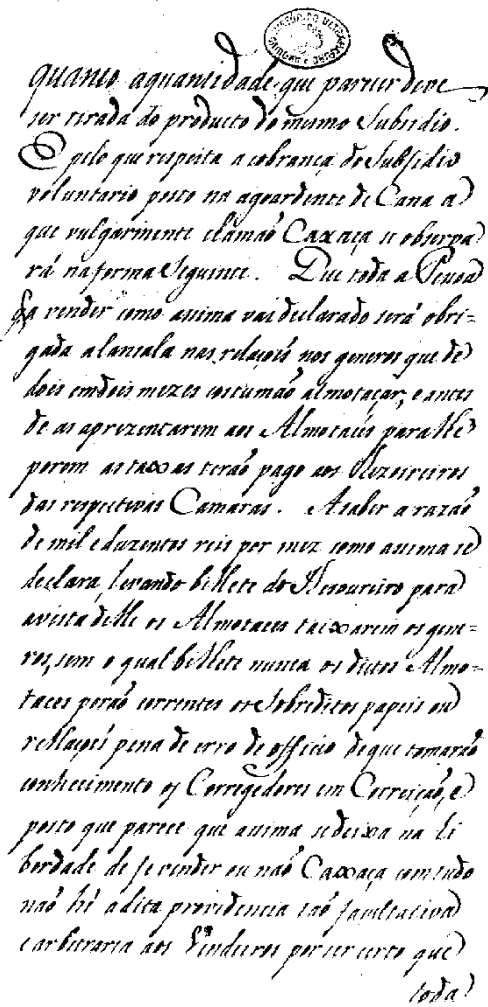 quanto aquantidade que parecer deve
ser tirada do producto do mesmo Subsidio.
E pelo que respeita a cobrança do Subsidio
voluntario posto na agoardente de Cana a
que vulgarmente clamaõ Caxaça se observa
rá na forma Seguinte. Que toda a Pessoa
q̃ a vender como assima vai declarado será obri-
gada a lansala nas relaçoẽs nos generos que de
dois em dois mezes costumaõ almotaçar, e antes
de as aprezentarem aos Almotacés para lhe
porem as taxas teraõ pago aos Thezoireiros
das respectivas Camaras. Asaber a razaõ
de mil e duzentos reis por mez como assima se
declara, levando billete do Thesoureiro para
avista delle os Almotaces taixarem os gene-
ros, sem o qual billete nunca os dictos Almo-
taces poraõ correntes os Sobreditos papeis ou
rellaçoẽs pena de erro de officio de que tomaraõ
conhecimento os Corregedores em Correiçaõ, e
posto que parece que assima se deixa na li
berdade de se vender ou naõ Caxaça com tudo
naõ hé a dita providencia taõ facultativa
e arbitraria aos Vindeiros por ser certo que
toda